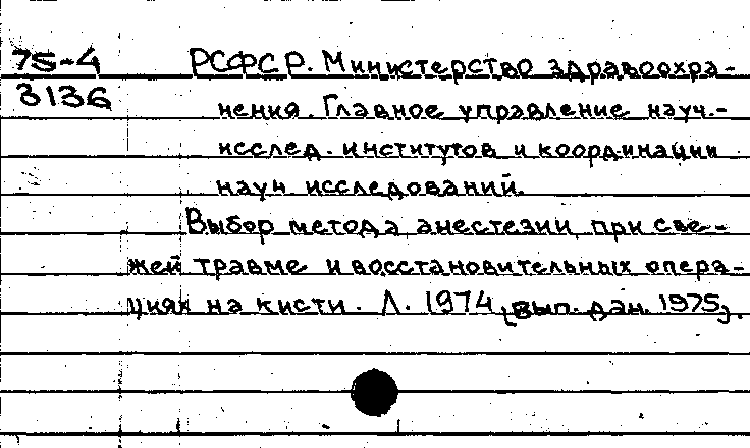 75-4 РСФСР. Министерство здравоохра-
3136 нения. Главное управление науч.-
исслед. институтов и координации
науч исследований.
Выбор метода анестезии при све-
жей травме и восстановительных опера-
циях на кисти. Л. 1974 [вып. дан. 1975].